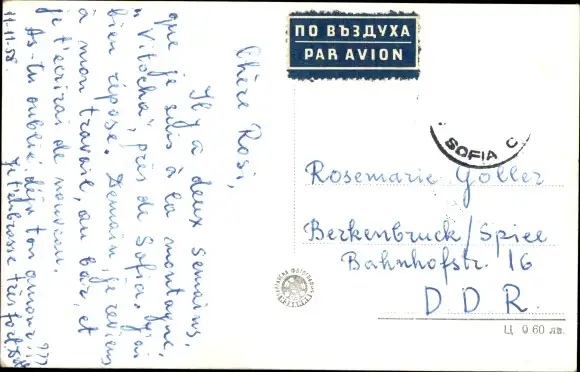 Chère Rosi,
Il y a deux semains,
que je suis à la montagne,
"Vitocha", près de Sofia. J'ai
bien reposé. Demain, je reviens
à mon travail, au bar, et
je t'écrirai de nouveau.
As-tu oublié déjà ton amour???
Je t'embrasse très fort
11-11-58.
ПО ВЪЗДУХА
PAR AVION
SOFIA C
Rosemarie Goller
Berkenbruck/Spree
Bahnhofstr. 16
D D R.
Ц 0 60 лв.